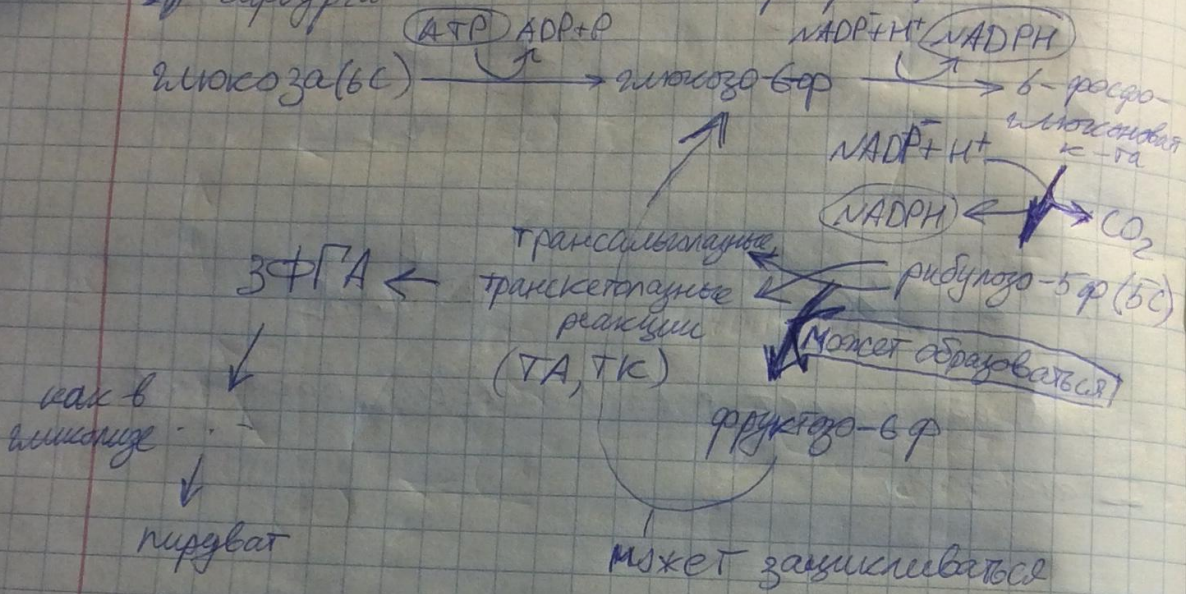 ATP ADP+P NADP⁻+H⁺ NADPH
глюкоза(6С) глюкозо-6ф 6-фосфо-
глюконовая
к-та
NADP⁻+H⁺
NADPH CO₂
трансальдолазные,
транскетолазные
реакции
(ТА, ТК)
3ФГА
рибулозо-5ф(5С)
может образоваться
как в
гликолизе ...
фруктозо-6ф
пируват
может зацикливаться